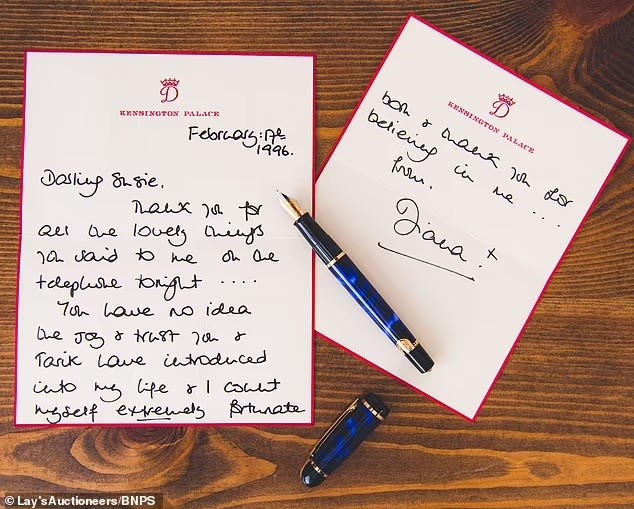 D
KENSINGTON PALACE
February: 17th
1996.
Darling Susie,
Thank you for
all the lovely things
you said to me on the
telephone tonight ....
You have no idea
the joy & trust you &
Tarik have introduced
into my life & I count
myself extremely fortunate
D
KENSINGTON PALACE
both & thank you for
believing in me ....
from,
Diana. x
© Lay'sAuctioneers/BNPS